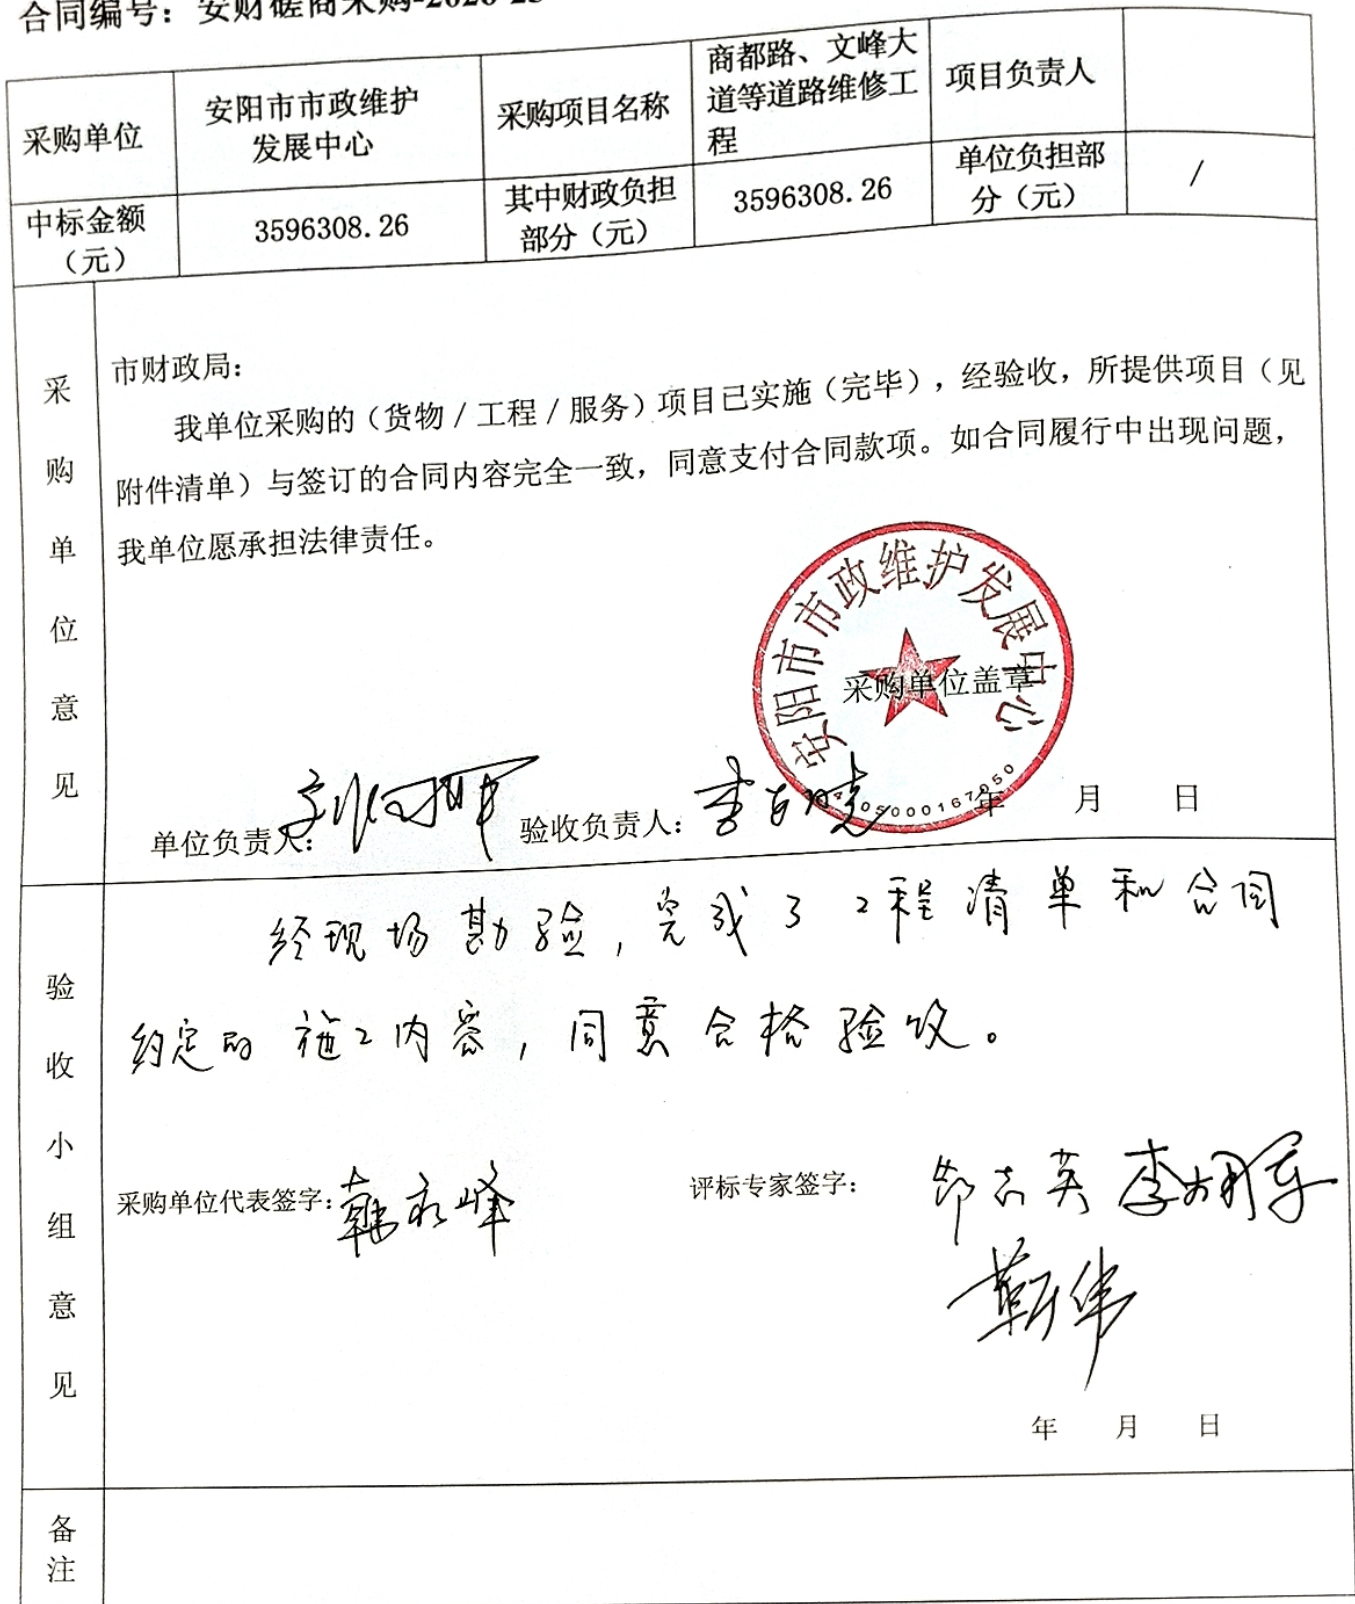 合同编号：安财磋商采购-2020-25
采购单位
安阳市市政维护
发展中心
采购项目名称
商都路、文峰大
道等道路维修工
程
项目负责人
中标金额
（元）
3596308.26
其中财政负担
部分（元）
3596308.26
单位负担部
分（元）
/
采购单位意见
市财政局：
我单位采购的（货物/工程/服务）项目已实施（完毕），经验收，所提供项目（见
附件清单）与签订的合同内容完全一致，同意支付合同款项。如合同履行中出现问题，
我单位愿承担法律责任。
安阳市市政维护发展中心
采购单位盖章
单位负责人：
验收负责人：
年 月 日
验收小组意见
经现场勘验，完成了工程清单和合同
约定的施工内容，同意合格验收。
采购单位代表签字：韩永峰
评标专家签字：
靳伟
年 月 日
备注